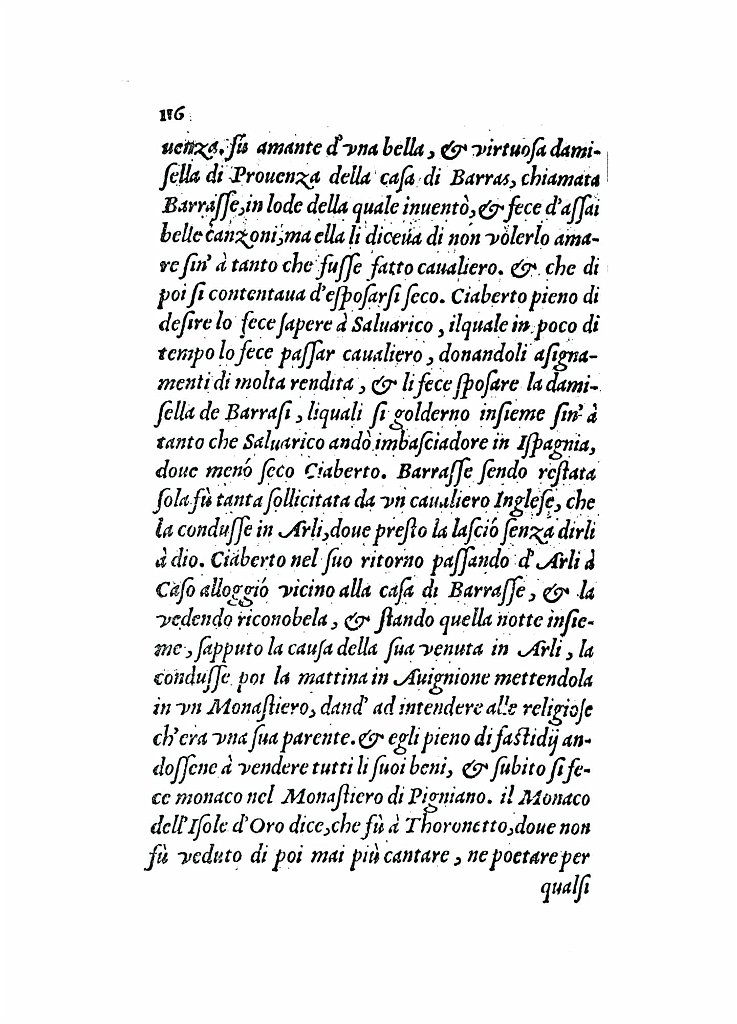 116
uenza. fù amante d'vna bella, & virtuosa dami-
sella di Prouenza della casa di Barras, chiamata
Barrasse, in lode della quale inuentò, & fece d'assai
belle canzoni, ma ella li diceua di non volerlo ama-
re sin' à tanto che fusse fatto caualiero. & che di
poi si contentaua d'esposarsi seco. Ciaberto pieno di
desire lo fece sapere à Saluarico, ilquale in poco di
tempo lo fece passar caualiero, donandoli asigna-
menti di molta rendita, & li fece sposare la dami-
sella de Barrasi, liquali si golderno insieme sin' à
tanto che Saluarico andò imbasciadore in Ispagnia,
doue menó seco Ciaberto. Barrasse sendo restata
sola fù tanta sollicitata da vn caualiero Inglese, che
la condusse in Arli, doue presto la lasció senza dirli
à dio. Ciaberto nel suo ritorno passando d'Arli à
Caso alloggió vicino alla casa di Barrasse, & la
vedendo riconobela, & stando quella notte insie-
me, sapputo la causa della sua venuta in Arli, la
condusse poi la mattina in Auignione mettendola
in vn Monastiero, dand' ad intendere alle religiose
ch'era vna sua parente. & egli pieno di fastidij an-
dossene à vendere tutti li suoi beni, & subito si fe-
ce monaco nel Monastiero di Pigniano. il Monaco
dell'Isole d'Oro dice, che fù à Thoronetto, doue non
fù veduto di poi mai più cantare, ne poetare per
qualsi